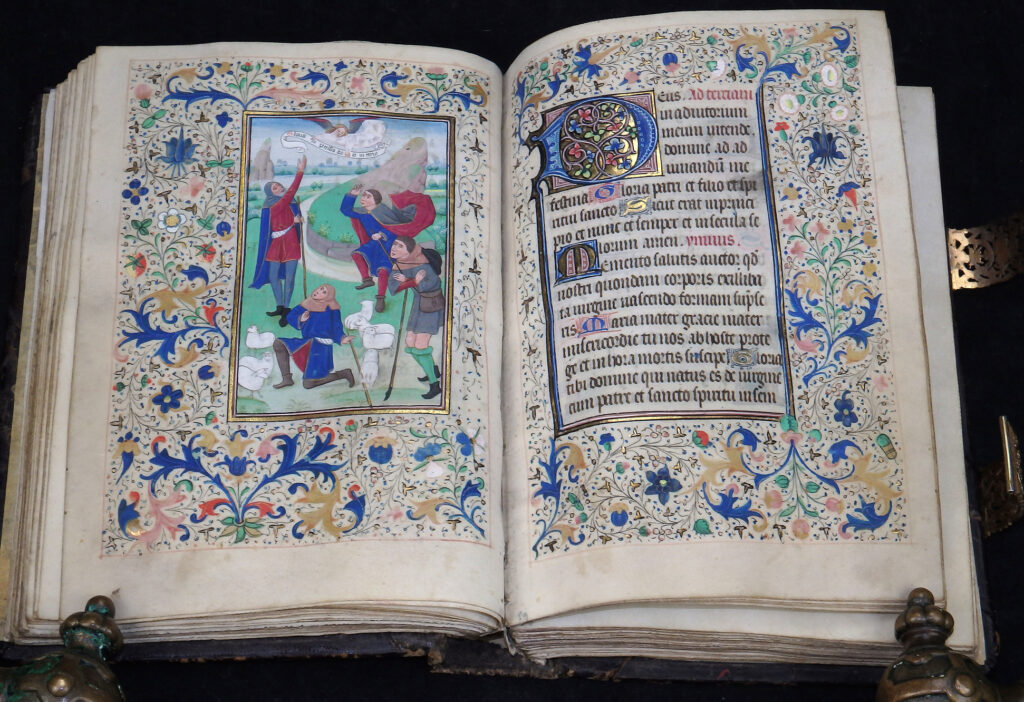 et in terra
Deus. Ad terciam
in adiutorium
meum intende.
domine ad ad
iuuandū me
festina Gloria patri et filio et spi
ritui sancto Sicut erat in princi
pio et nunc et semper et in secula se
culorum amen. ymnus.
Memento salutis auctor qd
nostri quondam corporis ex illiba
ta uirgine nascendo formam sumpse
ris Maria mater gracie mater
misericordie tu nos ab hoste prote
ge et in hora mortis suscipe Gloria
tibi domine qui natus es de uirgine
cum patre et sancto spiritu in sem